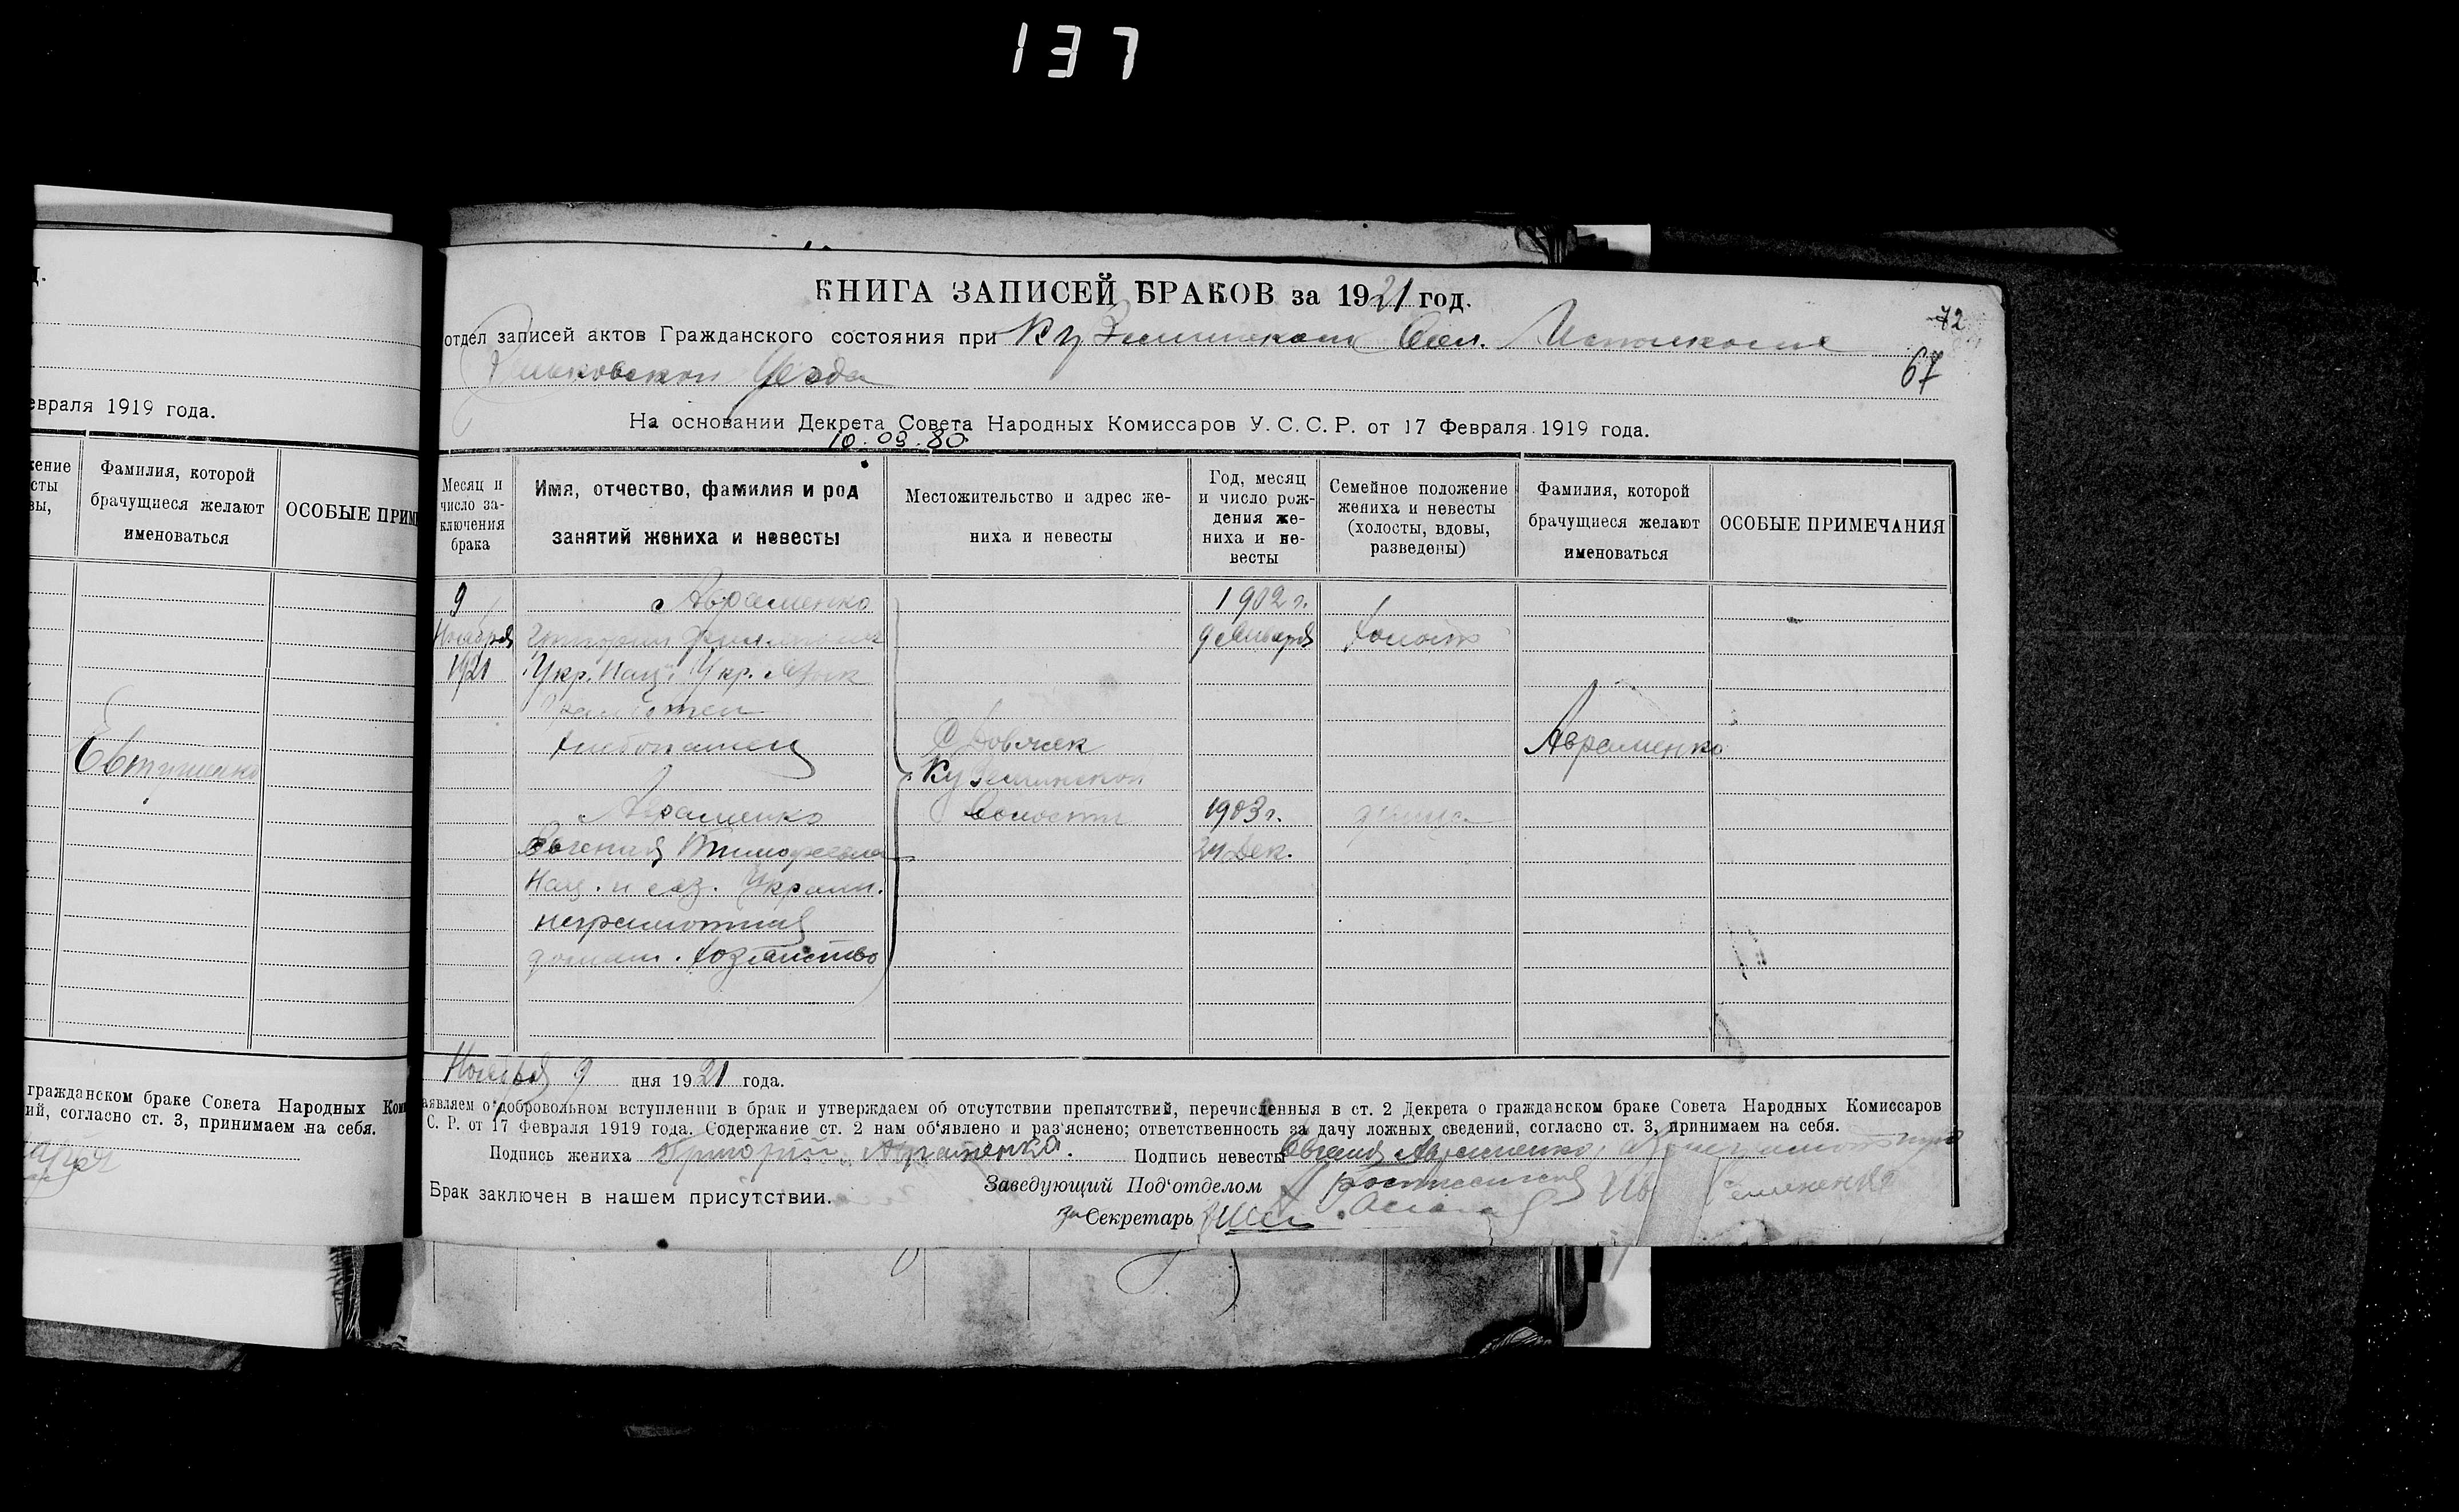 137
д.
евраля 1919 года.
жение
сты
вы,
Фамилия, которой
брачущиеся желают
именоваться
ОСОБЫЕ ПРИМ
Евтушенко
гражданском браке Совета Народных Ком
ий, согласно ст. 3, принимаем на себя.
КНИГА ЗАПИСЕЙ БРАКОВ за 1921 год.
72
отдел записей актов Гражданского состояния при Куземинском Исполкоме
67
Зиньковскои Уезда
На основании Декрета Совета Народных Комиссаров У. С. С. Р. от 17 Февраля 1919 года.
10.03.80
Месяц и
число за-
ключения
брака
Имя, отчество, фамилия и род
занятий жениха и невесты
Местожительство и адрес же-
ниха и невесты
Год, месяц
и число рож-
дения же-
ниха и не-
весты
Семейное положение
жениха и невесты
(холосты, вдовы,
разведены)
Фамилия, которой
брачущиеся желают
именоваться
ОСОБЫЕ ПРИМЕЧАНИЯ
9 Авраменко 1902 г.
Ноября Григории 9 Января холост
1921 Укр. Нац. Укр. Язык
Грамотен
хлебопашец С. Авраменко
Куземинской
Авраменко Волости 1903 г. девица
Евгения Тимофеевна 24 Дек.
Нац. и яз. Украин.
неграмотная
домаш. хозяйство
Ноября 9 дня 1921 года.
аявляем о добровольном вступлении в брак и утверждаем об отсутствии препятствий, перечисленныя в ст. 2 Декрета о гражданском браке Совета Народных Комиссаров
С. Р. от 17 Февраля 1919 года. Содержание ст. 2 нам об'явлено и раз'яснено; ответственность за дачу ложных сведений, согласно ст. 3, принимаем на себя.
Подпись жениха Григорий Авраменко. Подпись невесты Евгения Авраменко,
Заведующий Под'отделом
Брак заключен в нашем присутствии.
за Секретарь